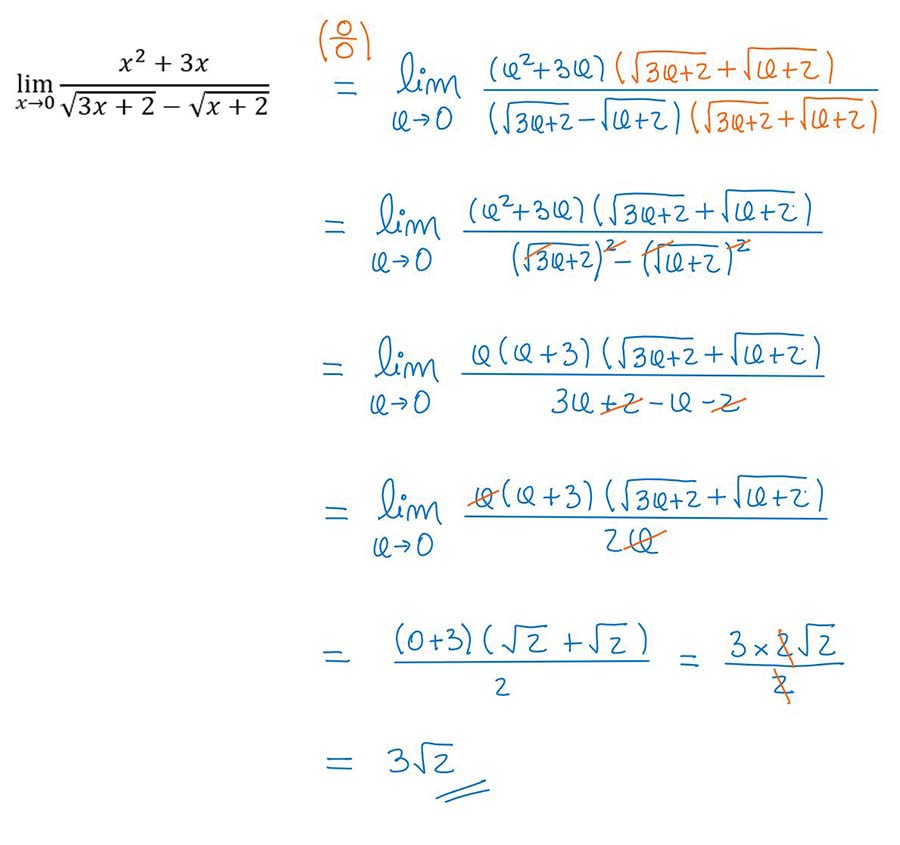 lim x→0 (x² + 3x)/(√(3x + 2) − √(x + 2)) (0/0) = lim x→0 ((x²+3x)(√(3x+2) + √(x+2)))/((√(3x+2) − √(x+2))(√(3x+2) + √(x+2)))
= lim x→0 ((x²+3x)(√(3x+2) + √(x+2)))/((√(3x+2))² − (√(x+2))²)
= lim x→0 (x(x+3)(√(3x+2) + √(x+2)))/(3x+2−x−2)
= lim x→0 (x(x+3)(√(3x+2) + √(x+2)))/(2x)
= ((0+3)(√2 + √2))/2 = (3×2√2)/2
= 3√2